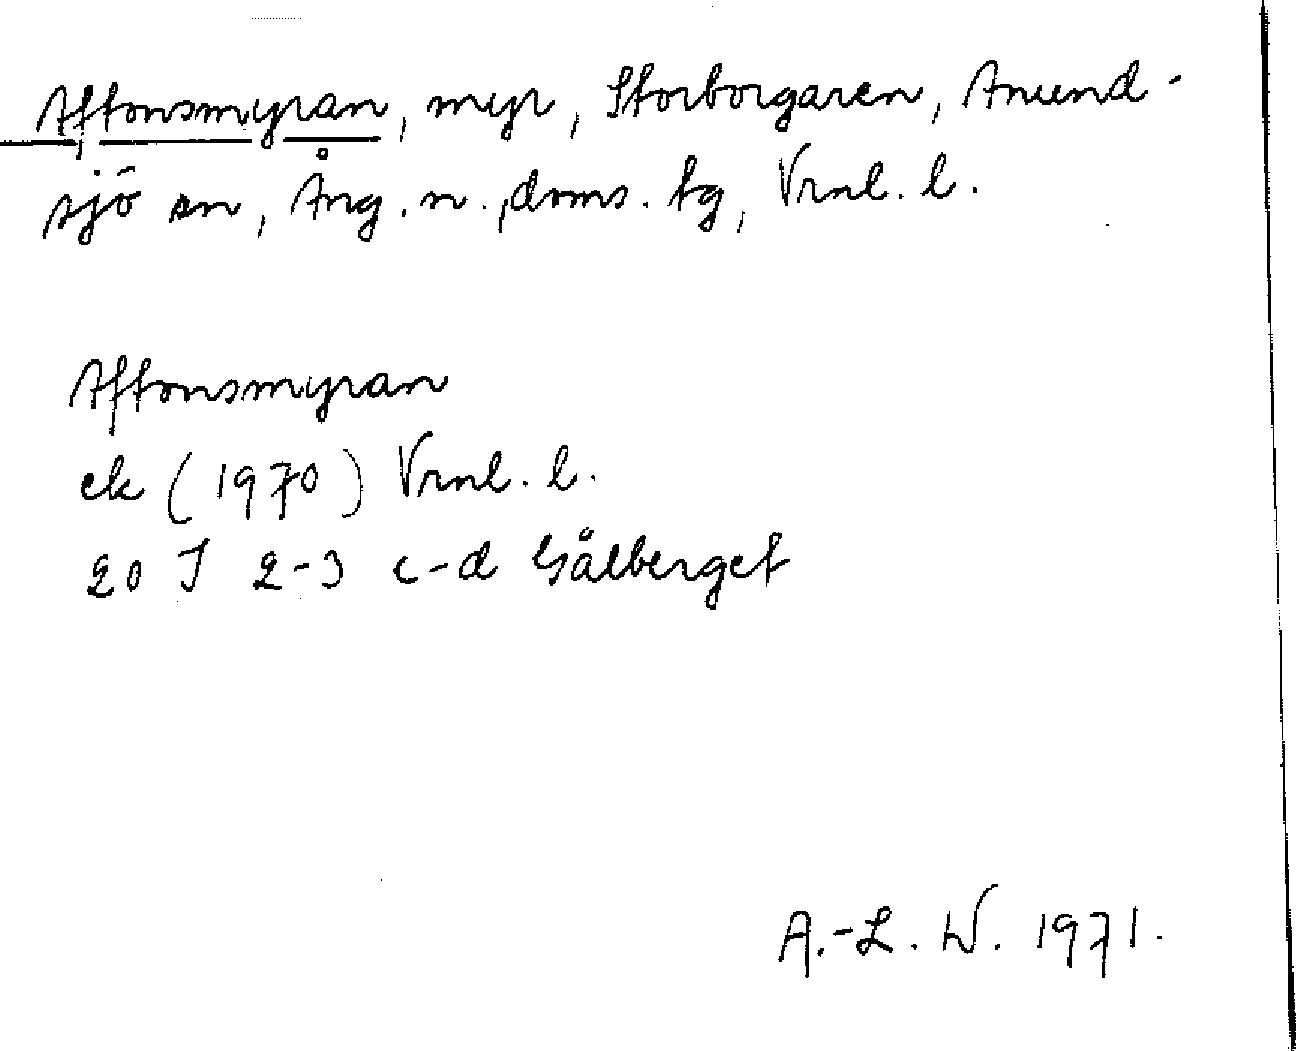 Affonsmyran, myr, Storborgaren, Anund-
sjö sn, Ång. n., doms. tg, Vrnl. l.
Affonsmyran
ek (1970) Vrnl. l.
20 J 2-3 c-d Gålberget
A.-L. W. 1971.